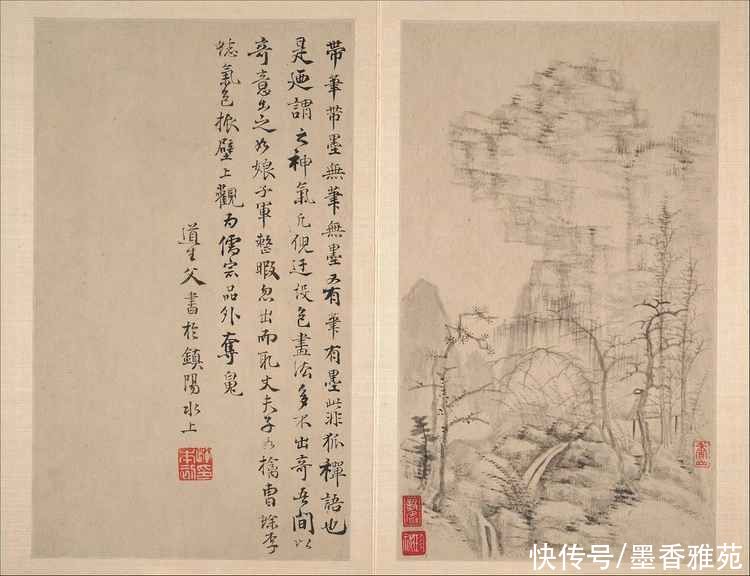 帶筆帶墨無筆無墨又有筆有墨此非狐禪語也
是廼謂之神氣凡倪迂設色畫法多不出奇吾間以
奇意出之如娘子軍整暇忽出而乳丈夫子如擒曹蜍李
誌氣色振壁上觀為儒宗品外奪鬼
道生父書於鎮陽水上
快传号/墨香雅苑